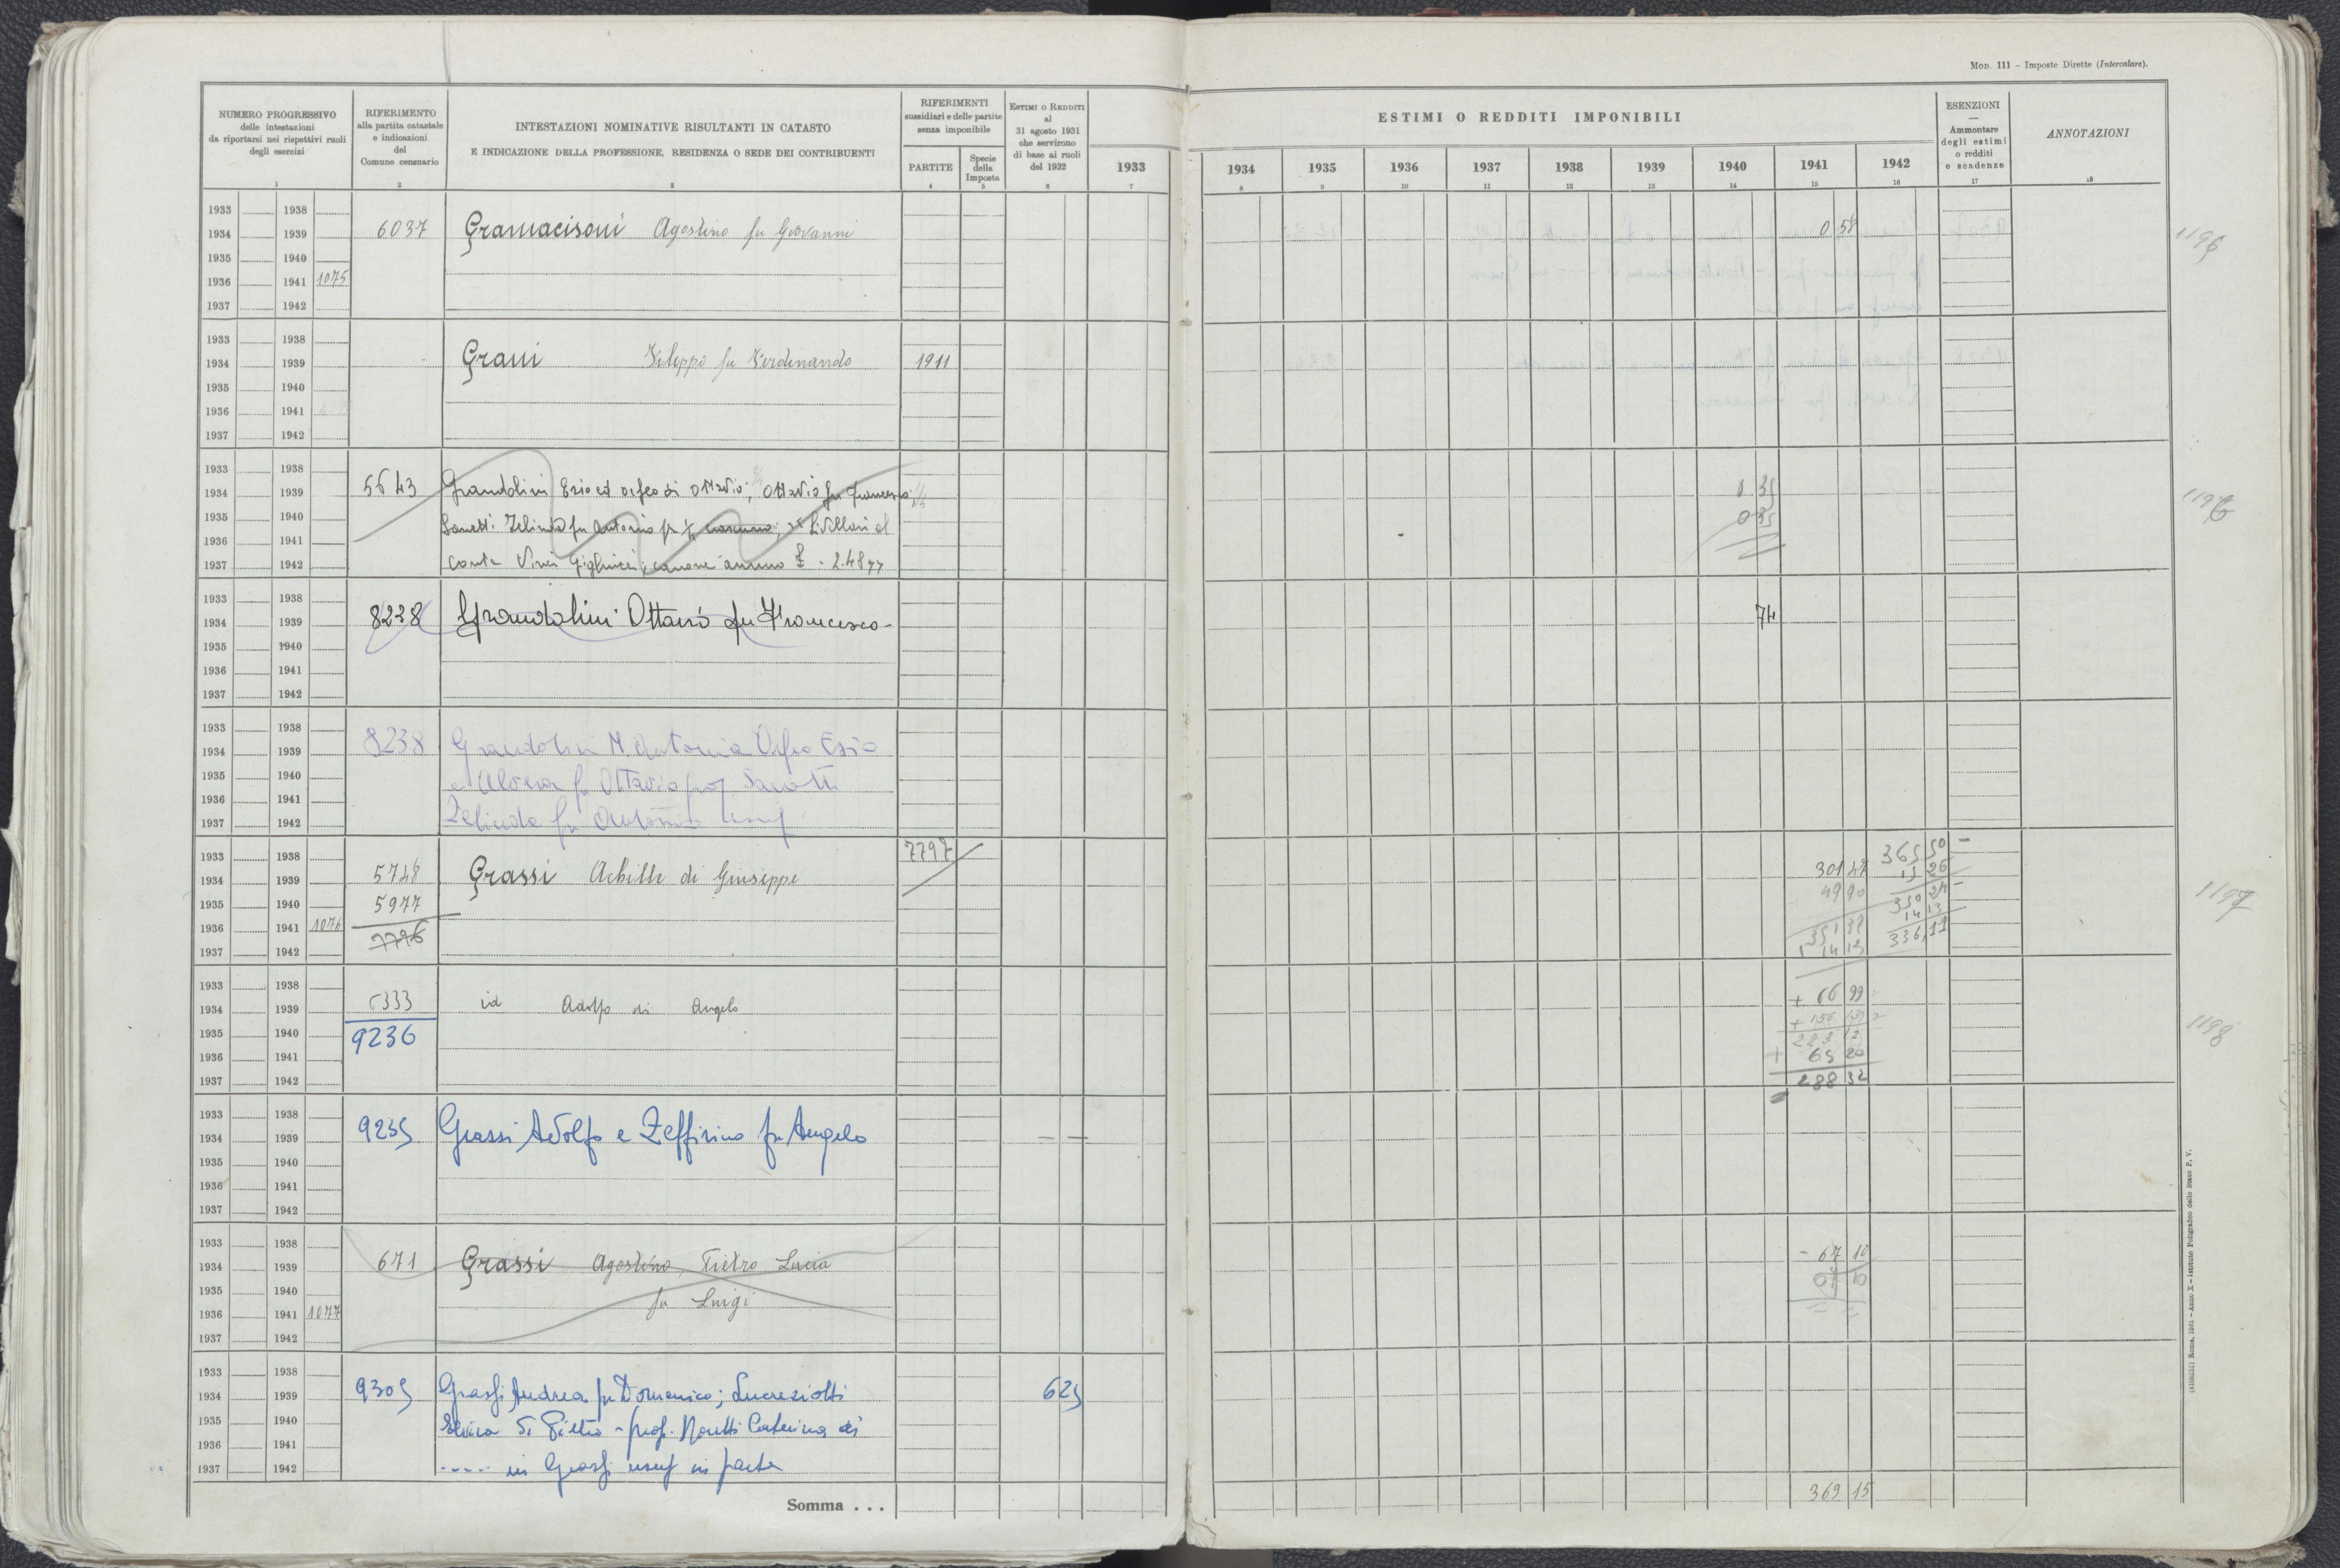 Mod. 111 - Imposte Dirette (Intercalare).
NUMERO PROGRESSIVO
delle intestazioni
da riportarsi nei rispettivi ruoli
degli esercizi
1
RIFERIMENTO
alla partita catastale
e indicazioni
del
Comune censuario
2
INTESTAZIONI NOMINATIVE RISULTANTI IN CATASTO
E INDICAZIONE DELLA PROFESSIONE, RESIDENZA O SEDE DEI CONTRIBUENTI
3
RIFERIMENTI
sussidiari e delle partite
senza imponibile
PARTITE
4
Specie
della
Imposta
5
Estimi o Redditi
al
31 agosto 1931
che servirono
di base ai ruoli
del 1932
6
ESTIMI O REDDITI IMPONIBILI
1933
7
1934
8
1935
9
1936
10
1937
11
1938
12
1939
13
1940
14
1941
15
1942
16
ESENZIONI
—
Ammontare
degli estimi
o redditi
e scadenze
17
ANNOTAZIONI
18
1933 1938
1934 1939 6037 Gramacisoni Agostino fu Giovanni 0 58 1196
1935 1940
1936 1941 1075
1937 1942
1933 1938
1934 1939 Grani Filippo fu Ferdinando 1911
1935 1940
1936 1941
1937 1942
1933 1938
1934 1939 5643 Grandolini Ezio ed Orfeo di Ottavio; Ottavio fu Francesco; 0 35
1935 1940 Zelinda fu Antonio 0 35
1936 1941
1937 1942 Conte Vinci Gigliucci; canone annuo £. 2.4877
1933 1938
1934 1939 8238 Grandolini Ottavio fu Francesco - 74
1935 1940
1936 1941
1937 1942
1933 1938
1934 1939 8238 Grandolini M Antonia Orfeo Ezio
1935 1940 fu Ottavio
1936 1941
1937 1942 Zelinda fu Antonio usuf
1933 1938 7797 365 50 -
1934 1939 5748 Grassi Achille di Giuseppe 301 47 15 26
1935 1940 5977 49 90 350 24 - 1197
1936 1941 1076 14 13
1937 1942 7796 14 13 336,11
1933 1938
1934 1939 id Adolfo di Angelo + 66 99
1935 1940 9236 1198
1936 1941 + 65 20
1937 1942 288 32
1933 1938
1934 1939 9235 Grassi Adolfo e Zeffirino fu Angelo — —
1935 1940
1936 1941
1937 1942
1933 1938
1934 1939 671 Grassi Agostino, Pietro Lucia - 67 10
1935 1940 fu Luigi
1936 1941 1077
1937 1942
1933 1938
1934 1939 9305 Grassi Andrea fu Domenico; Lucreziotti 625
1935 1940 Elvira di Pietro - prop. Moretti Caterina di
1936 1941
1937 1942 ..... in Grassi usuf in parte
Somma . . . 369 15
(4103221) Roma, 1931 - Anno X - Istituto Poligrafico dello Stato P. V.